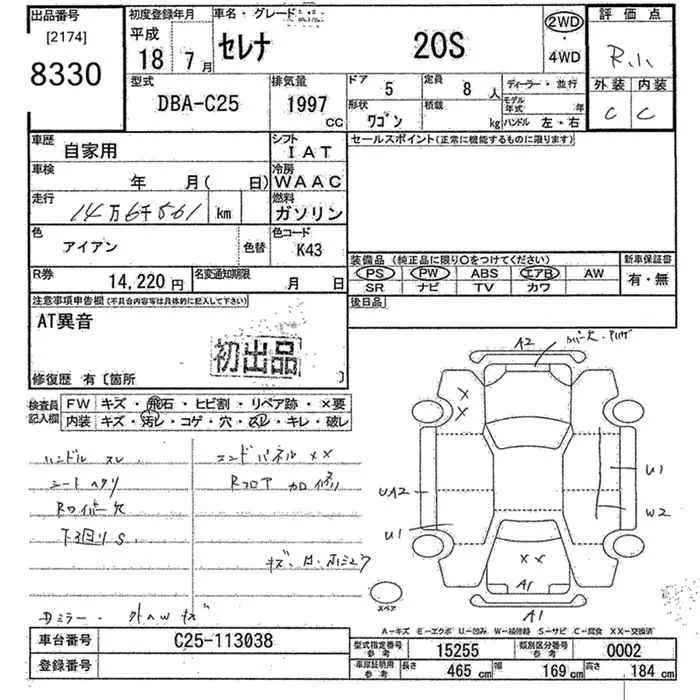 出品番号
[2174]
8330
初度登録年月
平成
18 7月
車名・グレード
セレナ 20S
2WD
・
4WD
評価点
R.1.
外装 内装
C C
型式
DBA-C25
排気量
1997
cc
ドア
5
定員
8 人
形状
ワゴン
積載
kg
ディーラー・並行
モデル
年式 年
ハンドル 左・右
車歴
自家用
シフト
IAT
車検
年 月( 日)
冷房
WAAC
走行
14万6千561 km
燃料
ガソリン
色
アイアン
色替
色コード
K43
R券
14,220 円
名変通知期限
月 日
セールスポイント(正常に機能するものに限ります)
装備品 (純正品に限り○をつけてください)
PS PW ABS エアB AW
SR ナビ TV カワ
新車保証書
有・無
後日品
注意事項申告欄(不具合内容等は具体的に記入して下さい)
AT異音
初出品
修復歴 有〔箇所 〕
検査員
記入欄
FW キズ・飛石・ヒビ割・リペア跡・×要
内装 キズ・汚レ・コゲ・穴・スレ・キレ・破レ
ハンドル スレ
シート ヘタリ
Rワイパー欠
下回り S.
エンドパネル XX
Rフロア 加修
Dミラー
A2
X
X
U1
W2
UA2
U1
XX
A1
A1
スペア
A-キズ E-エクボ U-凹ミ W-補修跡 S-サビ C-腐食 XX-交換済
車台番号
C25-113038
登録番号
型式指定番号
参考
15255
類別区分番号
参考
0002
車庫証明用
参考
長さ 465 cm
幅 169 cm
高さ 184 cm